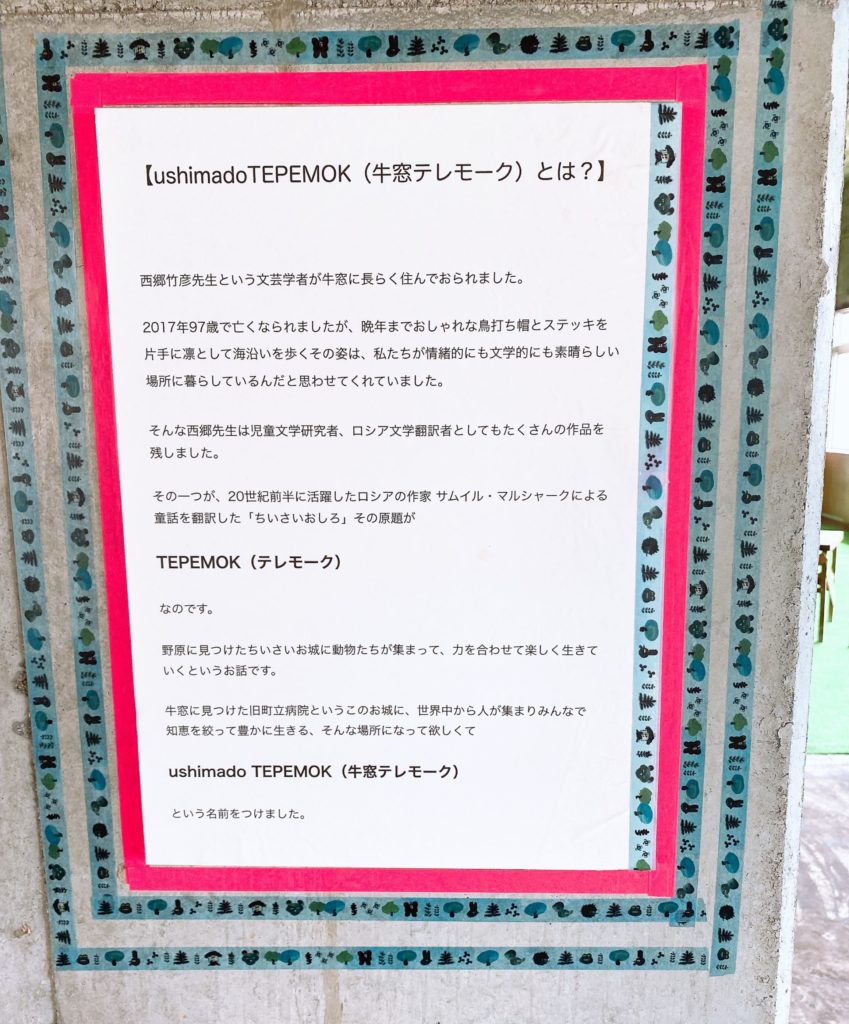 【ushimadoTEPEMOK（牛窓テレモーク）とは？】
西郷竹彦先生という文芸学者が牛窓に長らく住んでおられました。
2017年97歳で亡くなられましたが、晩年までおしゃれな鳥打ち帽とステッキを
片手に凛として海沿いを歩くその姿は、私たちが情緒的にも文学的にも素晴らしい
場所に暮らしているんだと思わせてくれていました。
そんな西郷先生は児童文学研究者、ロシア文学翻訳者としてもたくさんの作品を
残しました。
その一つが、20世紀前半に活躍したロシアの作家 サムイル・マルシャークによる
童話を翻訳した「ちいさいおしろ」その原題が
TEPEMOK（テレモーク）
なのです。
野原に見つけたちいさいお城に動物たちが集まって、力を合わせて楽しく生きて
いくというお話です。
牛窓に見つけた旧町立病院というこのお城に、世界中から人が集まりみんなで
知恵を絞って豊かに生きる、そんな場所になって欲しくて
ushimado TEPEMOK（牛窓テレモーク）
という名前をつけました。